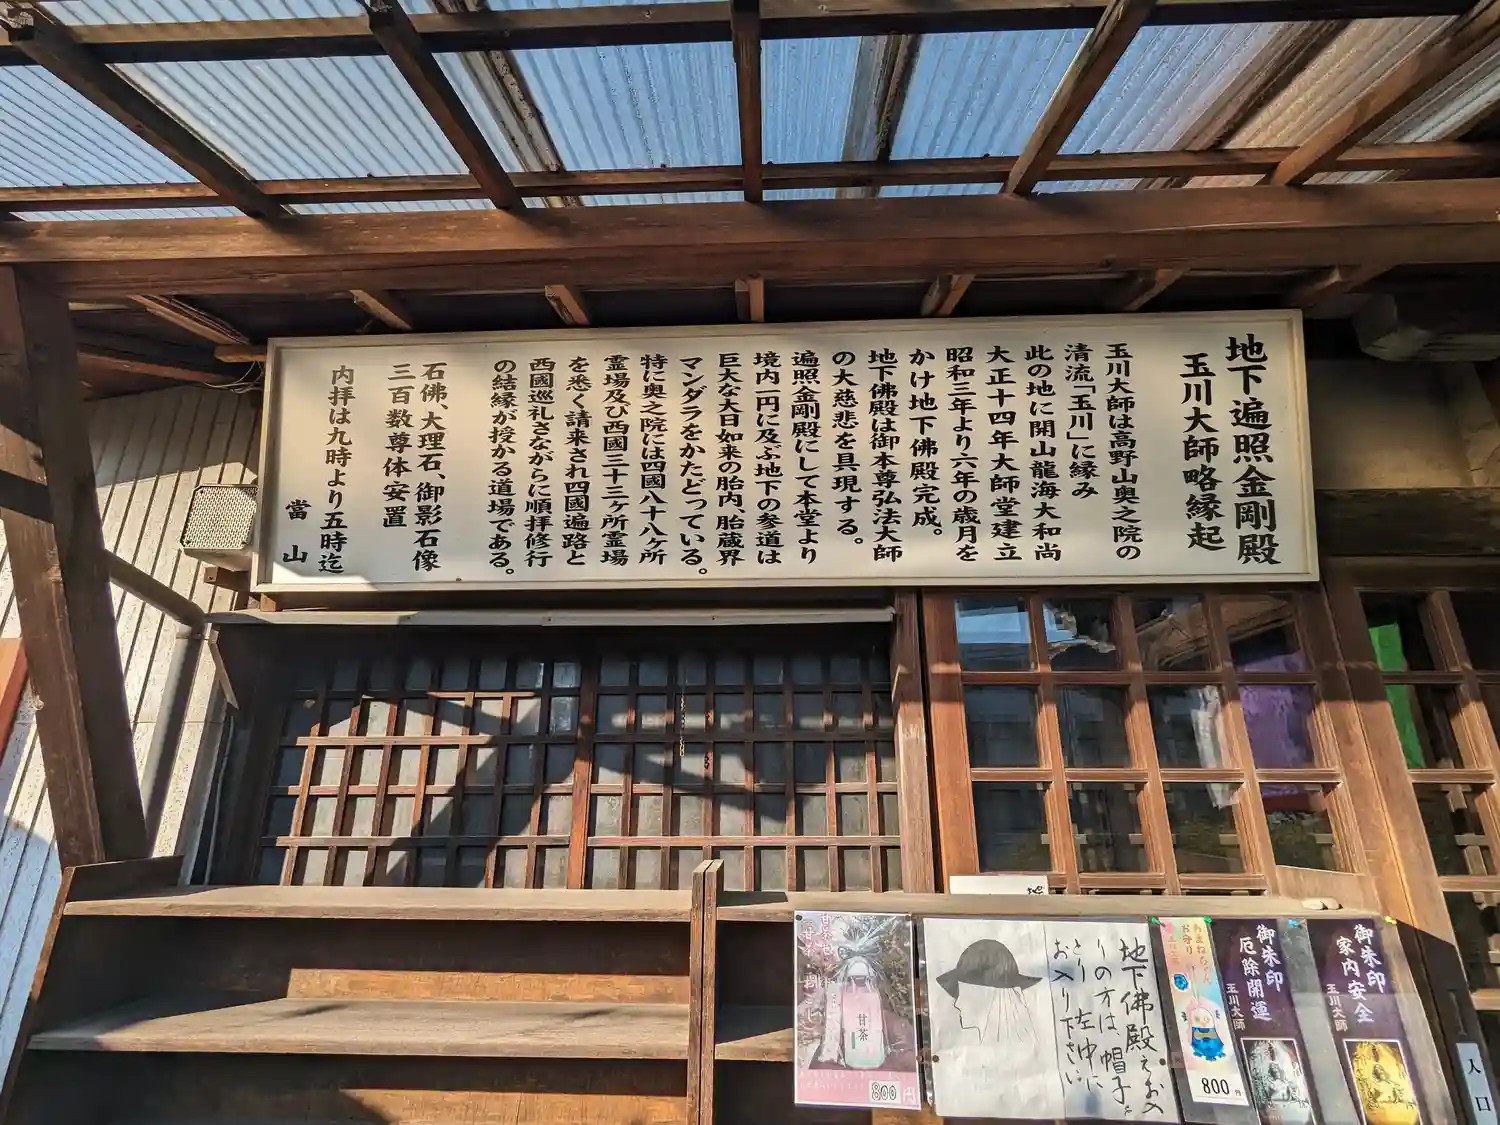 地下遍照金剛殿
玉川大師略縁起
玉川大師は高野山奥之院の
清流「玉川」に縁み
此の地に開山龍海大和尚
大正十四年大師堂建立
昭和三年より六年の歳月を
かけ地下佛殿完成。
地下佛殿は御本尊弘法大師
の大慈悲を具現する。
遍照金剛殿にして本堂より
境内一円に及ぶ地下の参道は
巨大な大日如来の胎内、胎蔵界
マンダラをかたどっている。
特に奥之院には四國八十八ヶ所
霊場及び西國三十三ヶ所霊場
を悉く請来され四國遍路と
西國巡礼さながらに順拝修行
の結縁が授かる道場である。
石佛、大理石、御影石像
三百数尊体安置
内拝は九時より五時迄
當山
御朱印
家内安全
玉川大師
御朱印
厄除開運
玉川大師
お守り
800円
地下佛殿へお入
りの方は、帽子を
とり左中に
お入り下さい
甘茶
800円
入口